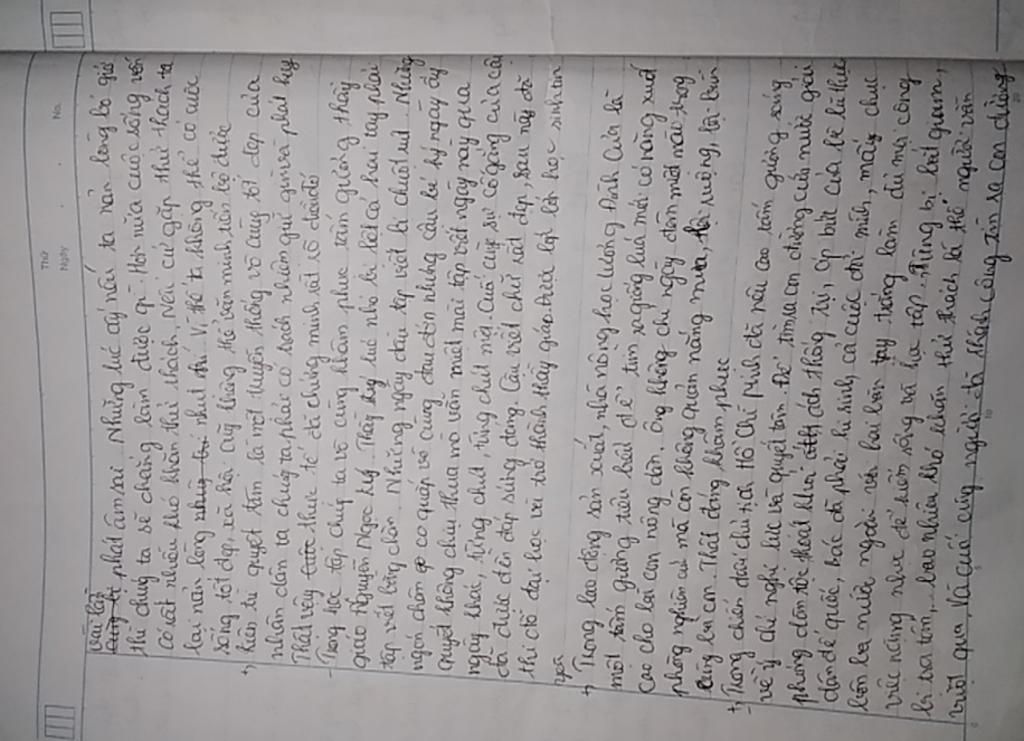 Thứ
Ngày
No.
vài lần
phát âm sai Những lúc ấy nếu ta nản lòng bỏ giở
thì chúng ta sẽ chẳng làm được gì. Hơn nữa cuộc sống vốn
có rất nhiều khó khăn thử thách, Nếu cứ gặp thử thách ta
lại nản lòng nhụt trí nhụt chí Vì thế ta không thể có cuộc
sống tốt đẹp, xã hội cũng không thể văn minh, tiến bộ được
+) kiên trì quyết tâm là một truyền thống vô cùng tốt đẹp của
nhân dân ta chúng ta phải có trách nhiệm giữ gìn và phát huy
Thật vậy thực tế đã chứng minh rất rõ điều đó
- Trong học tập chúng ta vô cùng khâm phục tấm gương thầy
giáo Nguyễn Ngọc Ký. Thầy Ký lúc nhỏ bị liệt cả hai tay, phải
tập viết bằng chân. Những ngày đầu tập viết bị chuột rút. Những
ngón chân co quắp vô cùng đau đớn nhưng cậu bé Ký ngày ấy
quyết không chịu thua mà vẫn miệt mài tập viết ngày này qua
ngày khác, từng chút, từng chút một. Cuối cùng sự cố gắng của cậu
đã được đền đáp xứng đáng. Cậu viết chữ rất đẹp, sau này đã
thi đỗ đại học và trở thành thầy giáo trước lớp lớp học sinh thân
yêu
+) Trong lao động sản xuất, nhà nông học Lương Định Của là
một tấm gương tiêu biểu để tìm ra giống lúa mới có năng suất
cao cho bà con nông dân. Ông không chỉ ngày đêm miệt mài trong
phòng nghiên cứu mà còn không quản nắng mưa, lội ruộng, lội bùn
cùng bà con. Thật đáng khâm phục
+) Trong chiến đấu chủ tịch Hồ Chí Minh đã nêu cao tấm gương sáng
về ý chí nghị lực và quyết tâm. Để tìm ra con đường cứu nước giải
phóng dân tộc thoát khỏi ách thống trị, áp bức của bè lũ thực
dân đế quốc, bác đã phải hi sinh cả cuộc đời mình, mấy chục
năm bôn ba nước ngoài với hai bàn tay trắng làm đủ mọi công
việc nặng nhọc để kiếm sống và học tập, từng bị bắt giam,
bị tra tấn,... bao nhiêu khó khăn thử thách là thế người vẫn
vượt qua, và cuối cùng người đã thành công tìm ra con đường